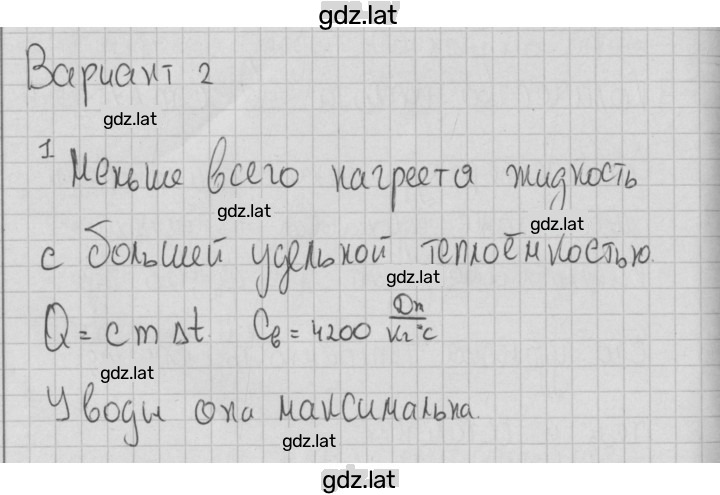 gdz.lat
Вариант 2
gdz.lat
1 Меньше всего нагреется жидкость
gdz.lat
gdz.lat
с большей удельной теплоёмкостью.
gdz.lat
Q = c m Δt. Cв = 4200 Дж/кг°С
gdz.lat
У воды она максимальна.
gdz.lat
gdz.lat